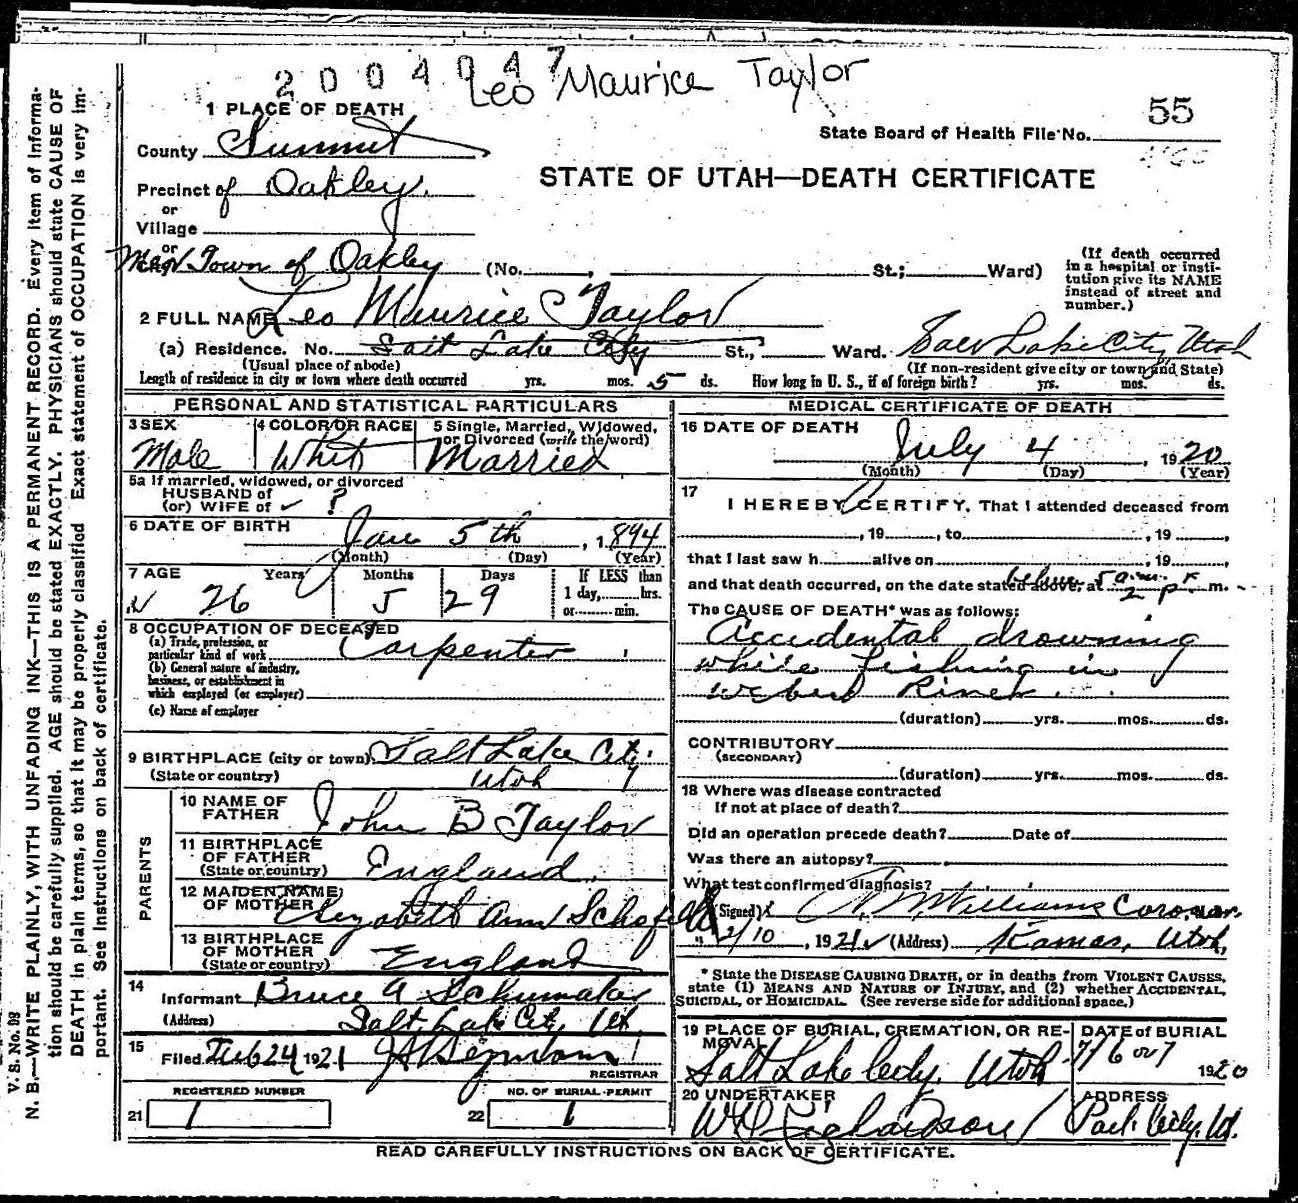 2004047
Leo Maurice Taylor
1 PLACE OF DEATH
55
State Board of Health File No.
County Summit
STATE OF UTAH—DEATH CERTIFICATE
Precinct of Oakley.
or
Village
or
Town of Oakley (No. , St.; Ward)
(If death occurred in a hospital or institution give its NAME instead of street and number.)
2 FULL NAME Leo Maurice Taylor
(a) Residence. No. Salt Lake City St., Ward. Salt Lake City, Utah
(Usual place of abode) (If non-resident give city or town and State)
Length of residence in city or town where death occurred yrs. mos. 5 ds. How long in U. S., if of foreign birth? yrs. mos. ds.
PERSONAL AND STATISTICAL PARTICULARS
3 SEX Male
4 COLOR OR RACE Whit
5 Single, Married, Widowed, or Divorced (write the word) Married
5a If married, widowed, or divorced
HUSBAND of
(or) WIFE of ?
6 DATE OF BIRTH Jan 5th, 1894
(Month) (Day) (Year)
7 AGE Years Months Days If LESS than
26 5 29 1 day, hrs.
or min.
8 OCCUPATION OF DECEASED
(a) Trade, profession, or particular kind of work Carpenter
(b) General nature of industry, business, or establishment in which employed (or employer)
(c) Name of employer
9 BIRTHPLACE (city or town) Salt Lake City
(State or country) Utah
PARENTS
10 NAME OF FATHER John B Taylor
11 BIRTHPLACE OF FATHER (State or country) England
12 MAIDEN NAME OF MOTHER Elizabeth Ann Schofield
13 BIRTHPLACE OF MOTHER (State or country) England
14 Informant Bruce A
(Address) Salt Lake City, Ut.
15 Filed Feb 24 1921
REGISTRAR
REGISTERED NUMBER NO. OF BURIAL PERMIT
21 1 22 1
MEDICAL CERTIFICATE OF DEATH
16 DATE OF DEATH July 4, 1920
(Month) (Day) (Year)
17 I HEREBY CERTIFY, That I attended deceased from
, 19 , to , 19 ,
that I last saw h alive on , 19 ,
and that death occurred, on the date stated above, at 5 a.m. 2 p. m.
The CAUSE OF DEATH* was as follows:
Accidental drowning
while fishing in
Weber River.
(duration) yrs. mos. ds.
CONTRIBUTORY
(SECONDARY)
(duration) yrs. mos. ds.
18 Where was disease contracted
If not at place of death?
Did an operation precede death? Date of
Was there an autopsy?
What test confirmed diagnosis?
(Signed) Williams Coroner.
2/10, 1921 (Address) Kamas, Utah,
* State the DISEASE CAUSING DEATH, or in deaths from VIOLENT CAUSES, state (1) MEANS AND NATURE OF INJURY, and (2) whether ACCIDENTAL, SUICIDAL, or HOMICIDAL. (See reverse side for additional space.)
19 PLACE OF BURIAL, CREMATION, OR REMOVAL DATE of BURIAL
Salt Lake City, Utah 7/6 or 7 1920
20 UNDERTAKER ADDRESS
Richardson Park City, Ut.
READ CAREFULLY INSTRUCTIONS ON BACK OF CERTIFICATE.
V. S. No. 98
N. B.—WRITE PLAINLY, WITH UNFADING INK—THIS IS A PERMANENT RECORD. Every item of information should be carefully supplied. AGE should be stated EXACTLY. PHYSICIANS should state CAUSE OF DEATH in plain terms, so that it may be properly classified. Exact statement of OCCUPATION is very important. See Instructions on back of certificate.